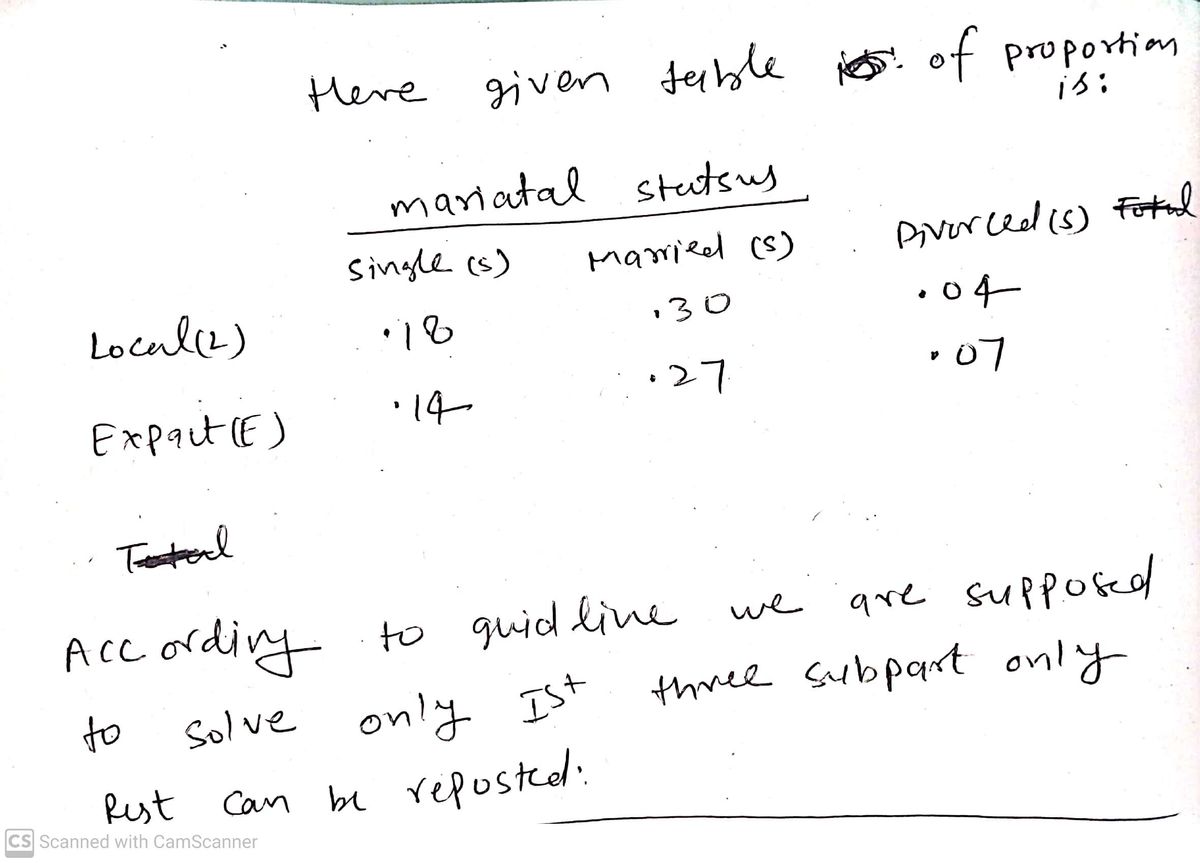 Here given table of proportion
is:
mariatal statsus
Single (s) Married (s) Divorced (s) Total
Local (L) .18 .30 .04
Expait (E) .14 .27 .07
Total
According to guidline we are supposed
to solve only Ist three subpart only
Rest can be reposted:
CS Scanned with CamScanner